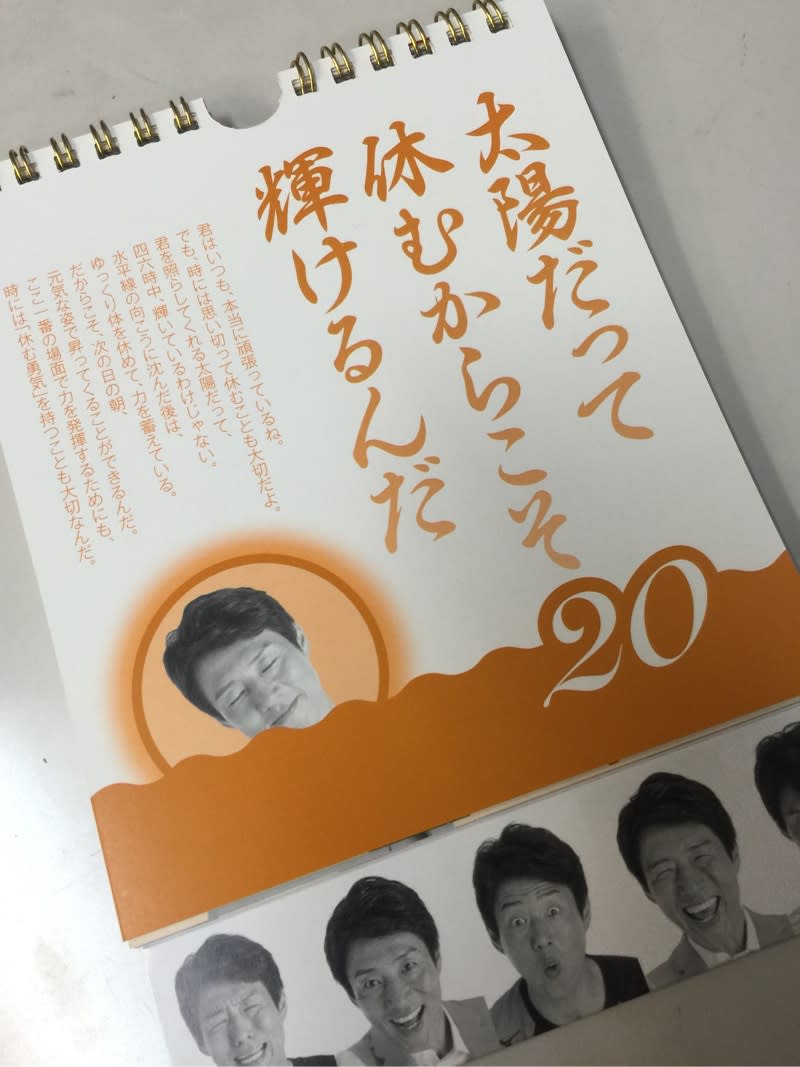 太陽だって
休むからこそ
輝けるんだ
君はいつも、本当に頑張っているね。
でも、時には思い切って休むことも大切だよ。
君を照らしてくれる太陽だって、
四六時中、輝いているわけじゃない。
水平線の向こうに沈んだ後は、
ゆっくり体を休めて、力を蓄えている。
だからこそ、次の日の朝、
元気な姿で昇ってくることができるんだ。
ここ一番の場面で力を発揮するためにも、
時には「休む勇気」を持つことも大切なんだ。
20